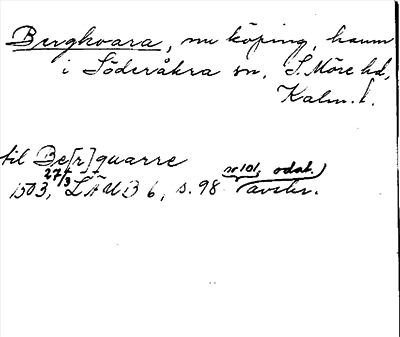 Bergkvara, nu köping, hamn
i Söderåkra sn, S. Möre hd,
Kalm. l.
til Be[r]quarre
1503, 27/3 LÄUB 6, s. 98 (avskr.
nr 101, odat.)